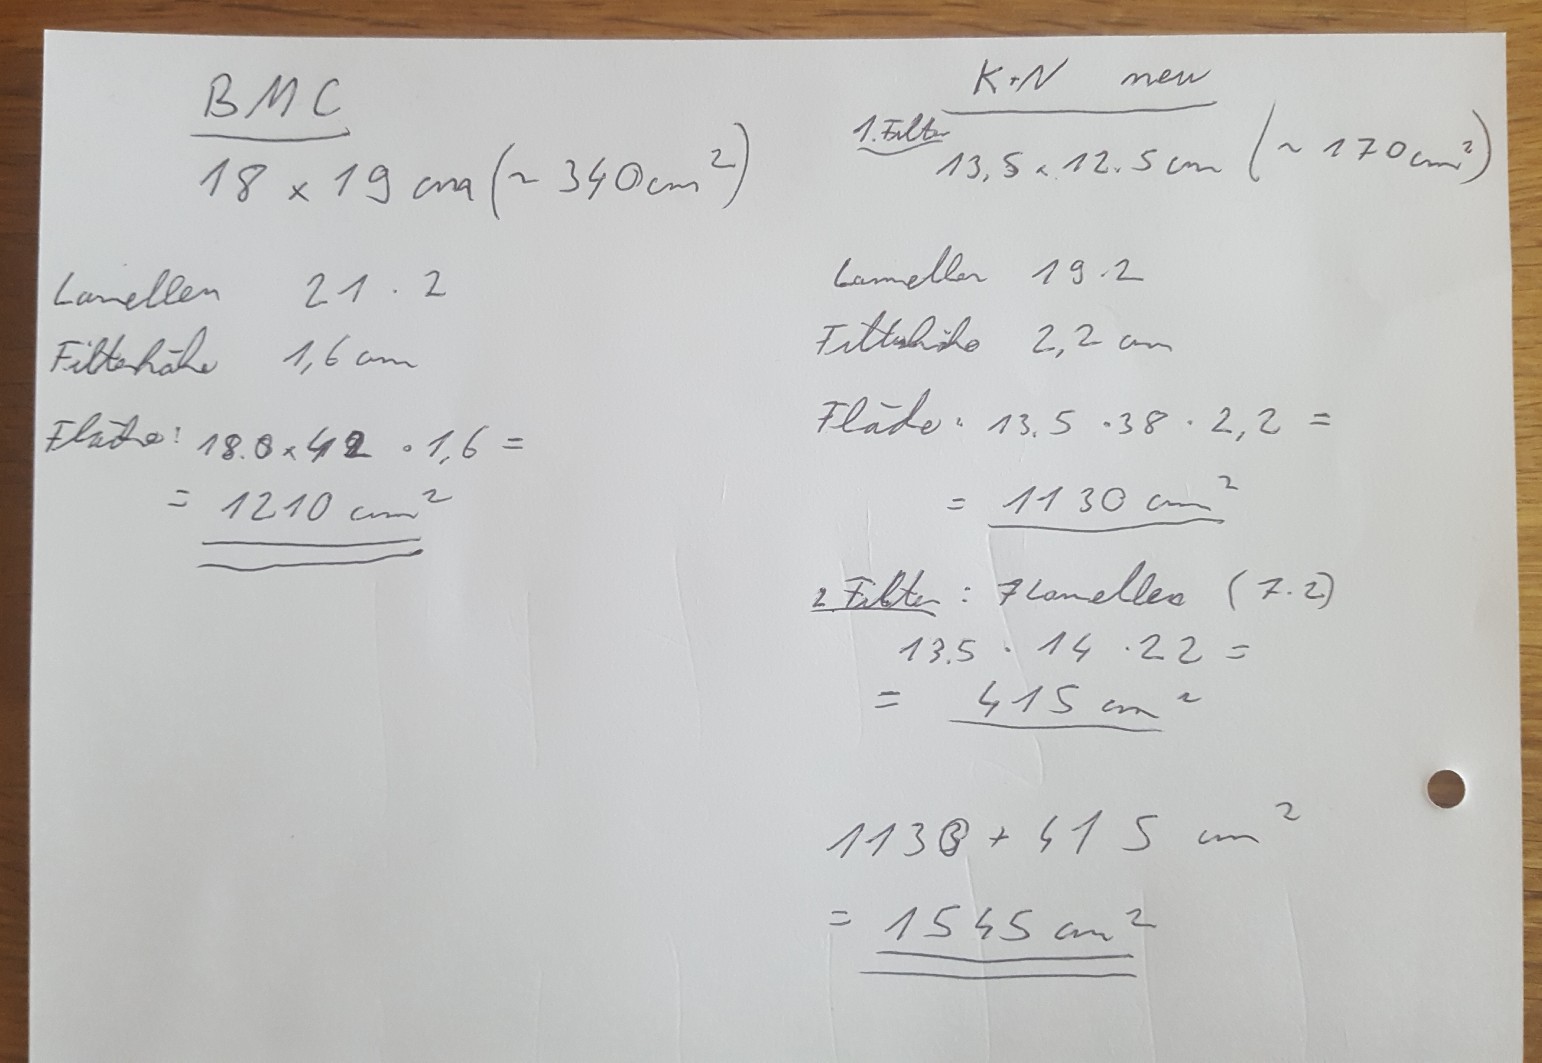 BMC
18 x 19 cm (~ 340 cm²)
Lamellen 21 . 2
Filterhöhe 1,6 cm
Fläche: 18.0 x 42 . 1,6 =
= 1210 cm²
K+N new
1. Filter
13,5 x 12.5 cm (~ 170 cm²)
Lamellen 19 . 2
Filterhöhe 2,2 cm
Fläche: 13.5 . 38 . 2,2 =
= 1130 cm²
2 Filter : 7 Lamellen (7.2)
13.5 . 14 . 22 =
= 415 cm²
1130 + 415 cm²
= 1545 cm²